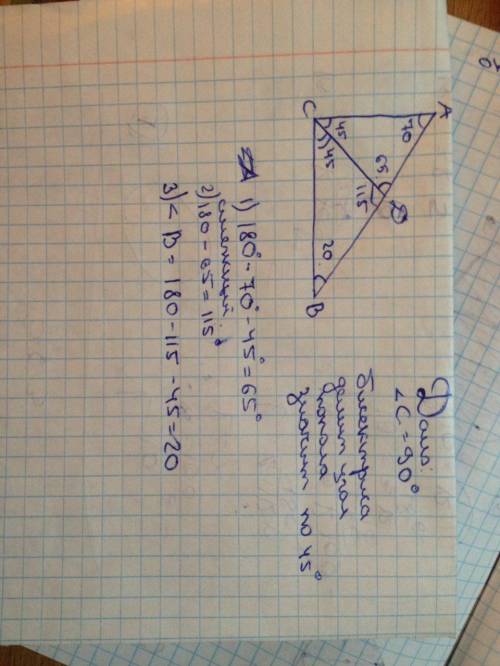 A
70
65
D
115
45
45
C
20
B
Дано:
∠C = 90°
биссектриса
делит угол
пополам
значит по 45°
1) 180° - 70° - 45° = 65°
смежный
2) 180 - 65 = 115°
3) < B = 180 - 115 - 45 = 20